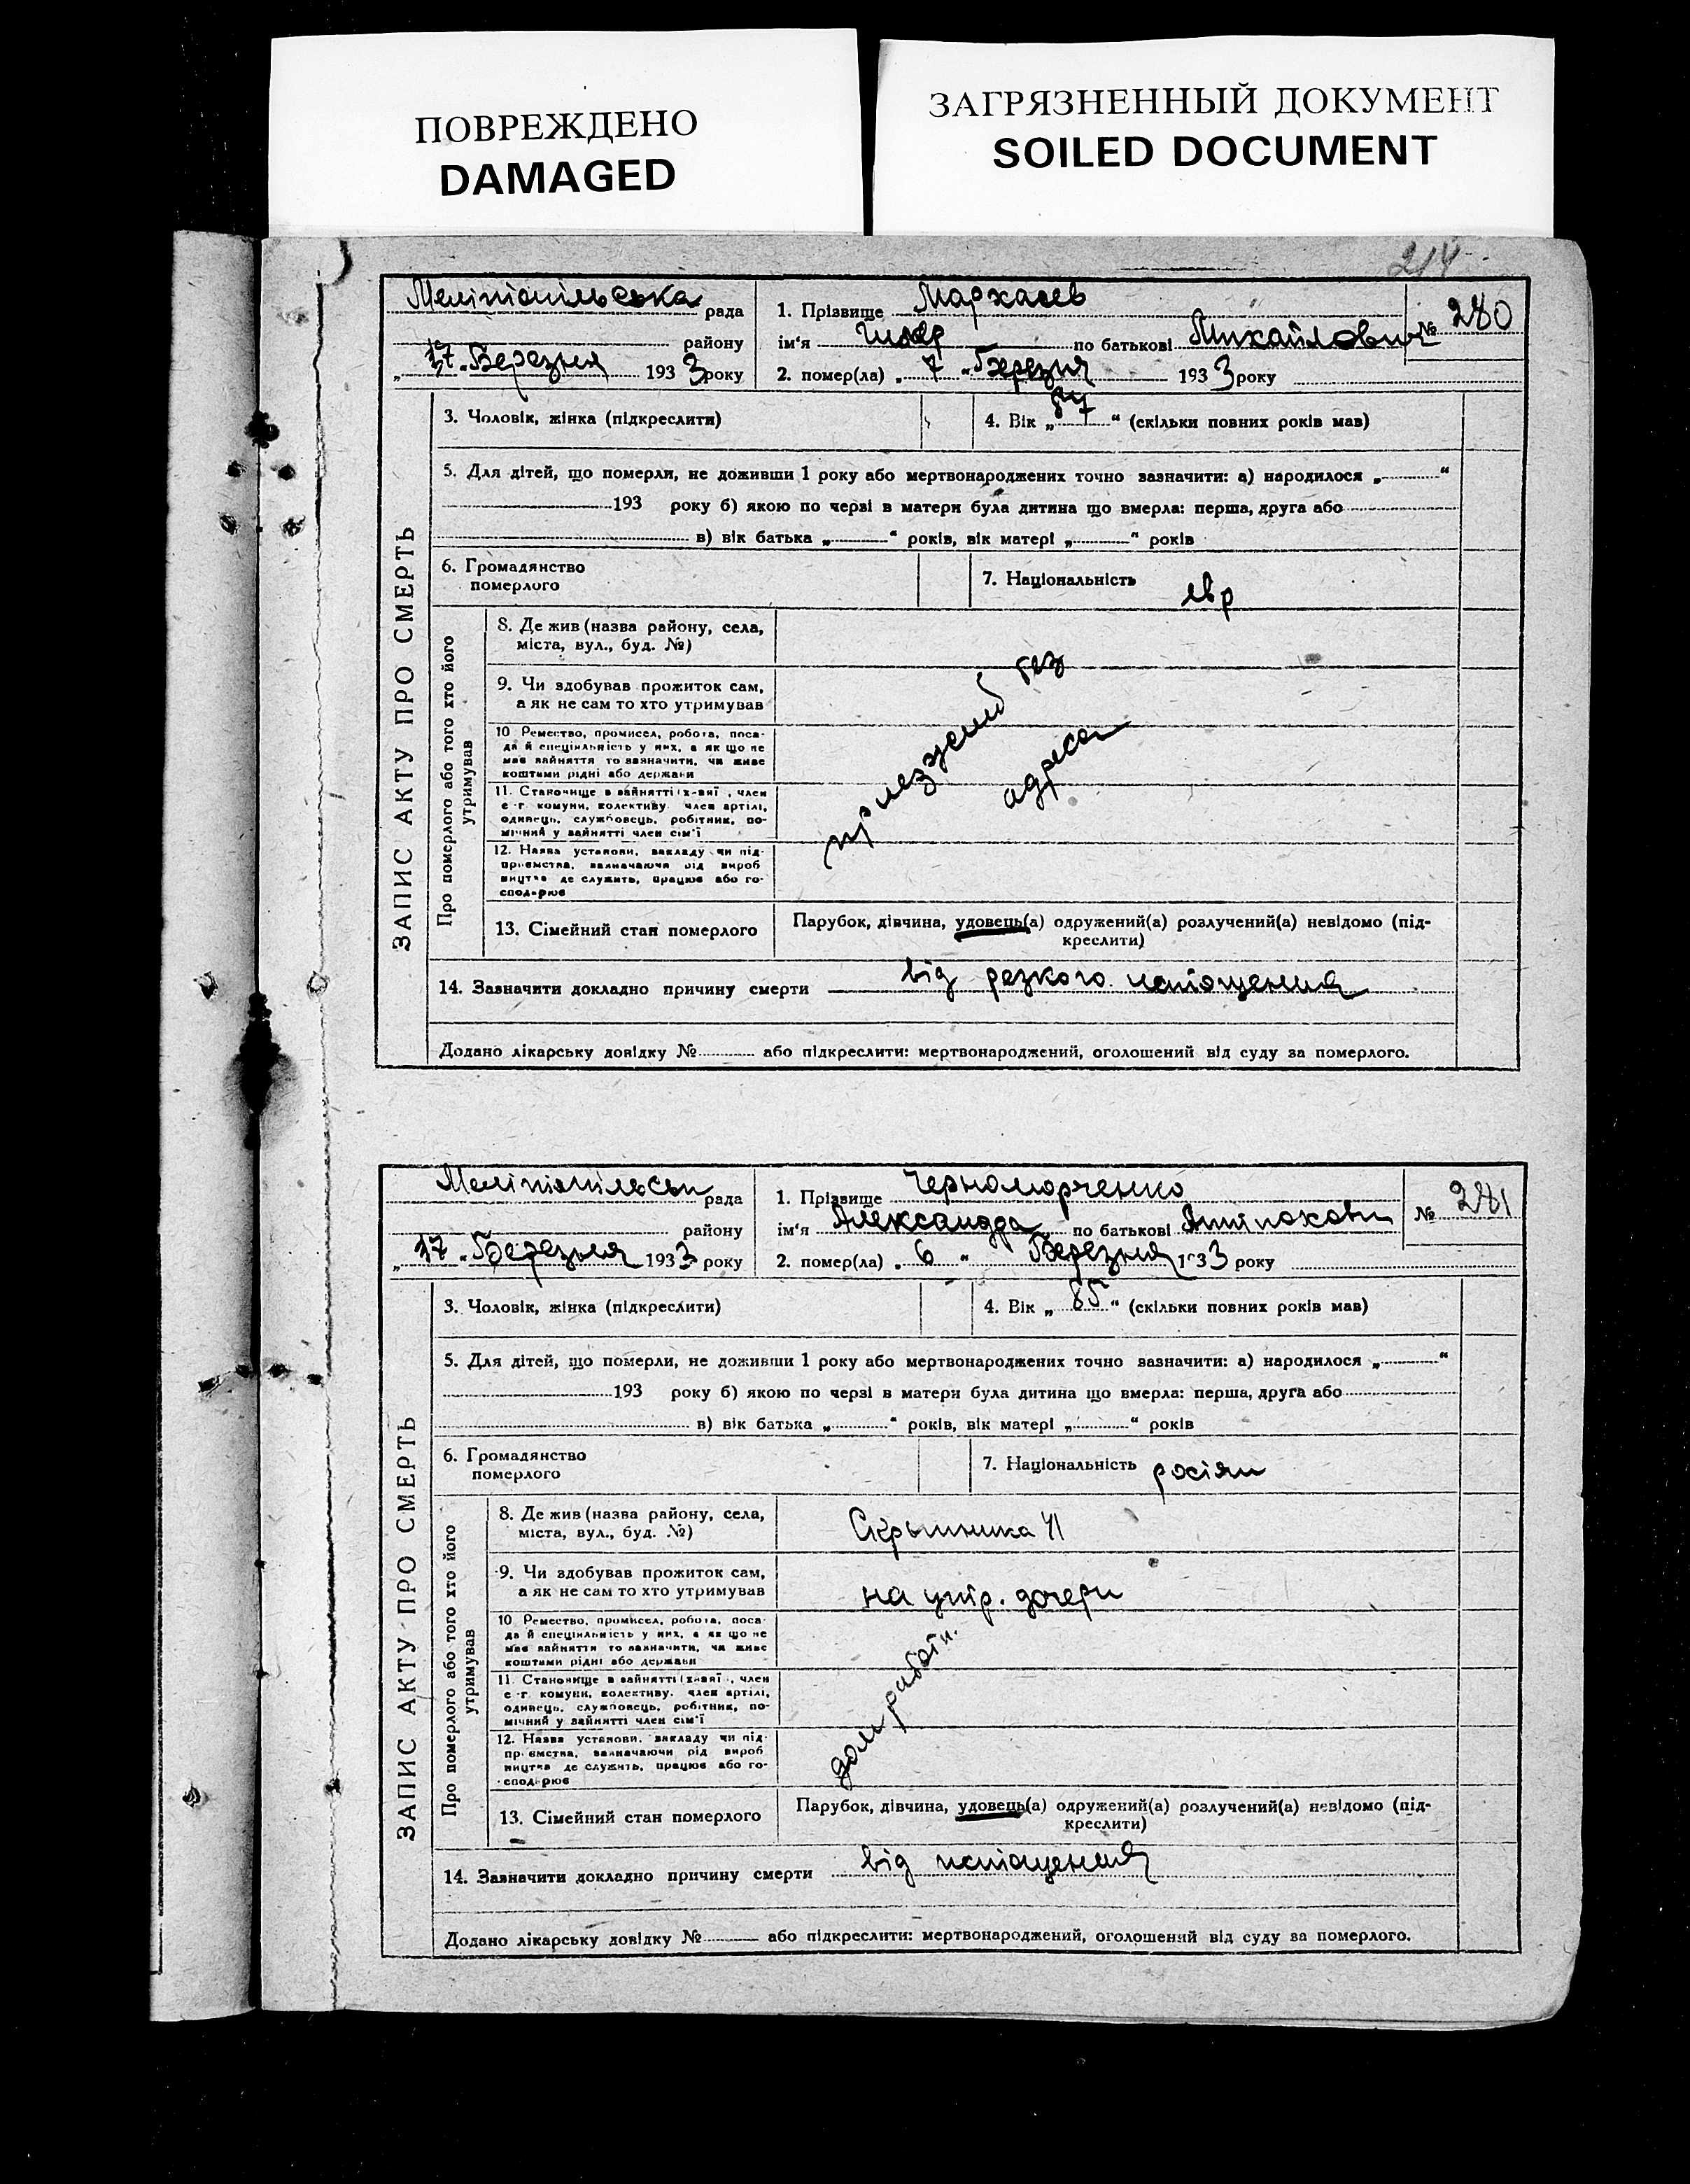 ПОВРЕЖДЕНО
DAMAGED
ЗАГРЯЗНЕННЫЙ ДОКУМЕНТ
SOILED DOCUMENT
214
Мелітопільська рада
району
„17„ Березня 1933 року
1. Прізвище Мархасев
ім'я по батькові Михайлович
2. помер(ла) „7„ Березня 1933 року
№ 280
ЗАПИС АКТУ ПРО СМЕРТЬ
3. Чоловік, жінка (підкреслити)
4. Вік „87“ (скільки повних років мав)
5. Для дітей, що померли, не доживши 1 року або мертвонароджених точно зазначити: а) народилося „ “
193 року б) якою по черзі в матери була дитина що вмерла: перша, друга або
в) вік батька „ “ років, вік матері „ “ років
6. Громадянство
померлого
7. Національність євр
Про померлого або того хто його
утримував
8. Де жив (назва району, села,
міста, вул., буд. №)
9. Чи здобував прожиток сам,
а як не сам то хто утримував
10 Ремество, промисел, робота, поса-
да й спеціяльність у них, а як що не
має зайняття то зазначити, чи живе
коштами рідні або держави
11. Становище в зайнятті член
комуни, колективу член артілі,
одинець, службовець, робітник, по-
мічний у зайнятті член сім'ї
12. Назва установи, закладу чи під-
приємства, зазначаючи рід вироб
ництва де служить, працює або го-
сподарює
приезжий без
адреса
13. Сімейний стан померлого
Парубок, дівчина, удовець(а) одружений(а) розлучений(а) невідомо (під-
креслити)
14. Зазначити докладно причину смерти від резкого истощения
Додано лікарську довідку № або підкреслити: мертвонароджений, оголошений від суду за померлого.
Мелітопільськ рада
району
„17„ Березня 1933 року
1. Прізвище Черноморченко
ім'я Александра по батькові Антіпохов
2. помер(ла) „6“ Березня 1933 року
№ 281
ЗАПИС АКТУ ПРО СМЕРТЬ
3. Чоловік, жінка (підкреслити)
4. Вік „85“ (скільки повних років мав)
5. Для дітей, що померли, не доживши 1 року або мертвонароджених точно зазначити: а) народилося „ “
193 року б) якою по черзі в матери була дитина що вмерла: перша, друга або
в) вік батька „ “ років, вік матері „ “ років
6. Громадянство
померлого
7. Національність росіян
Про померлого або того хто його
утримував
8. Де жив (назва району, села,
міста, вул., буд. №)
Скрыпника 41
9. Чи здобував прожиток сам,
а як не сам то хто утримував
на утр. дочери
10 Ремество, промисел, робота, поса-
да й спеціяльність у них, а як що не
має зайняття то зазначити, чи живе
коштами рідні або держави
11. Становище в зайнятті член
комуни, колективу. член артілі,
одинець, службовець, робітник, по-
мічний у зайнятті член сім'ї
12. Назва установи, закладу чи під-
приємства, зазначаючи рід вироб
ництва де служить, працює або го-
сподарює
дом работн.
13. Сімейний стан померлого
Парубок, дівчина, удовець(а) одружений(а) розлучений(а) невідомо (під-
креслити)
14. Зазначити докладно причину смерти від истощения
Додано лікарську довідку № або підкреслити: мертвонароджений, оголошений від суду за померлого.